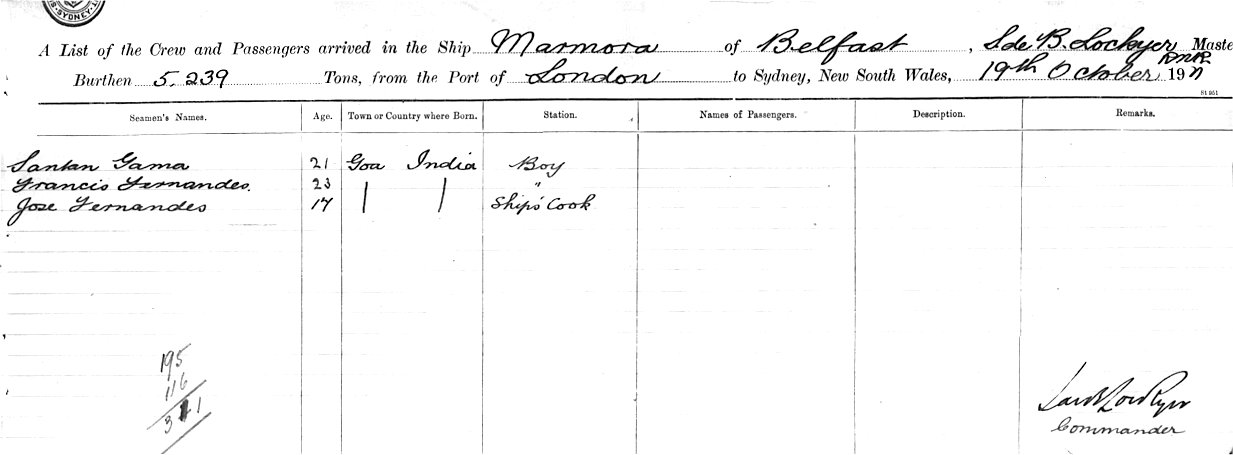 SYDNEY
A List of the Crew and Passengers arrived in the Ship Marmora of Belfast, S de B. Lockyer Maste
Burthen 5.239 Tons, from the Port of London to Sydney, New South Wales, 19th October RNR 19
Seamen's Names. Age. Town or Country where Born. Station. Names of Passengers. Description. Remarks.
Santan Gama 21 Goa India Boy
Francis Fernandes. 23 | | "
Jose Fernandes 17 | | Ships' Cook
195
116
311
Commander